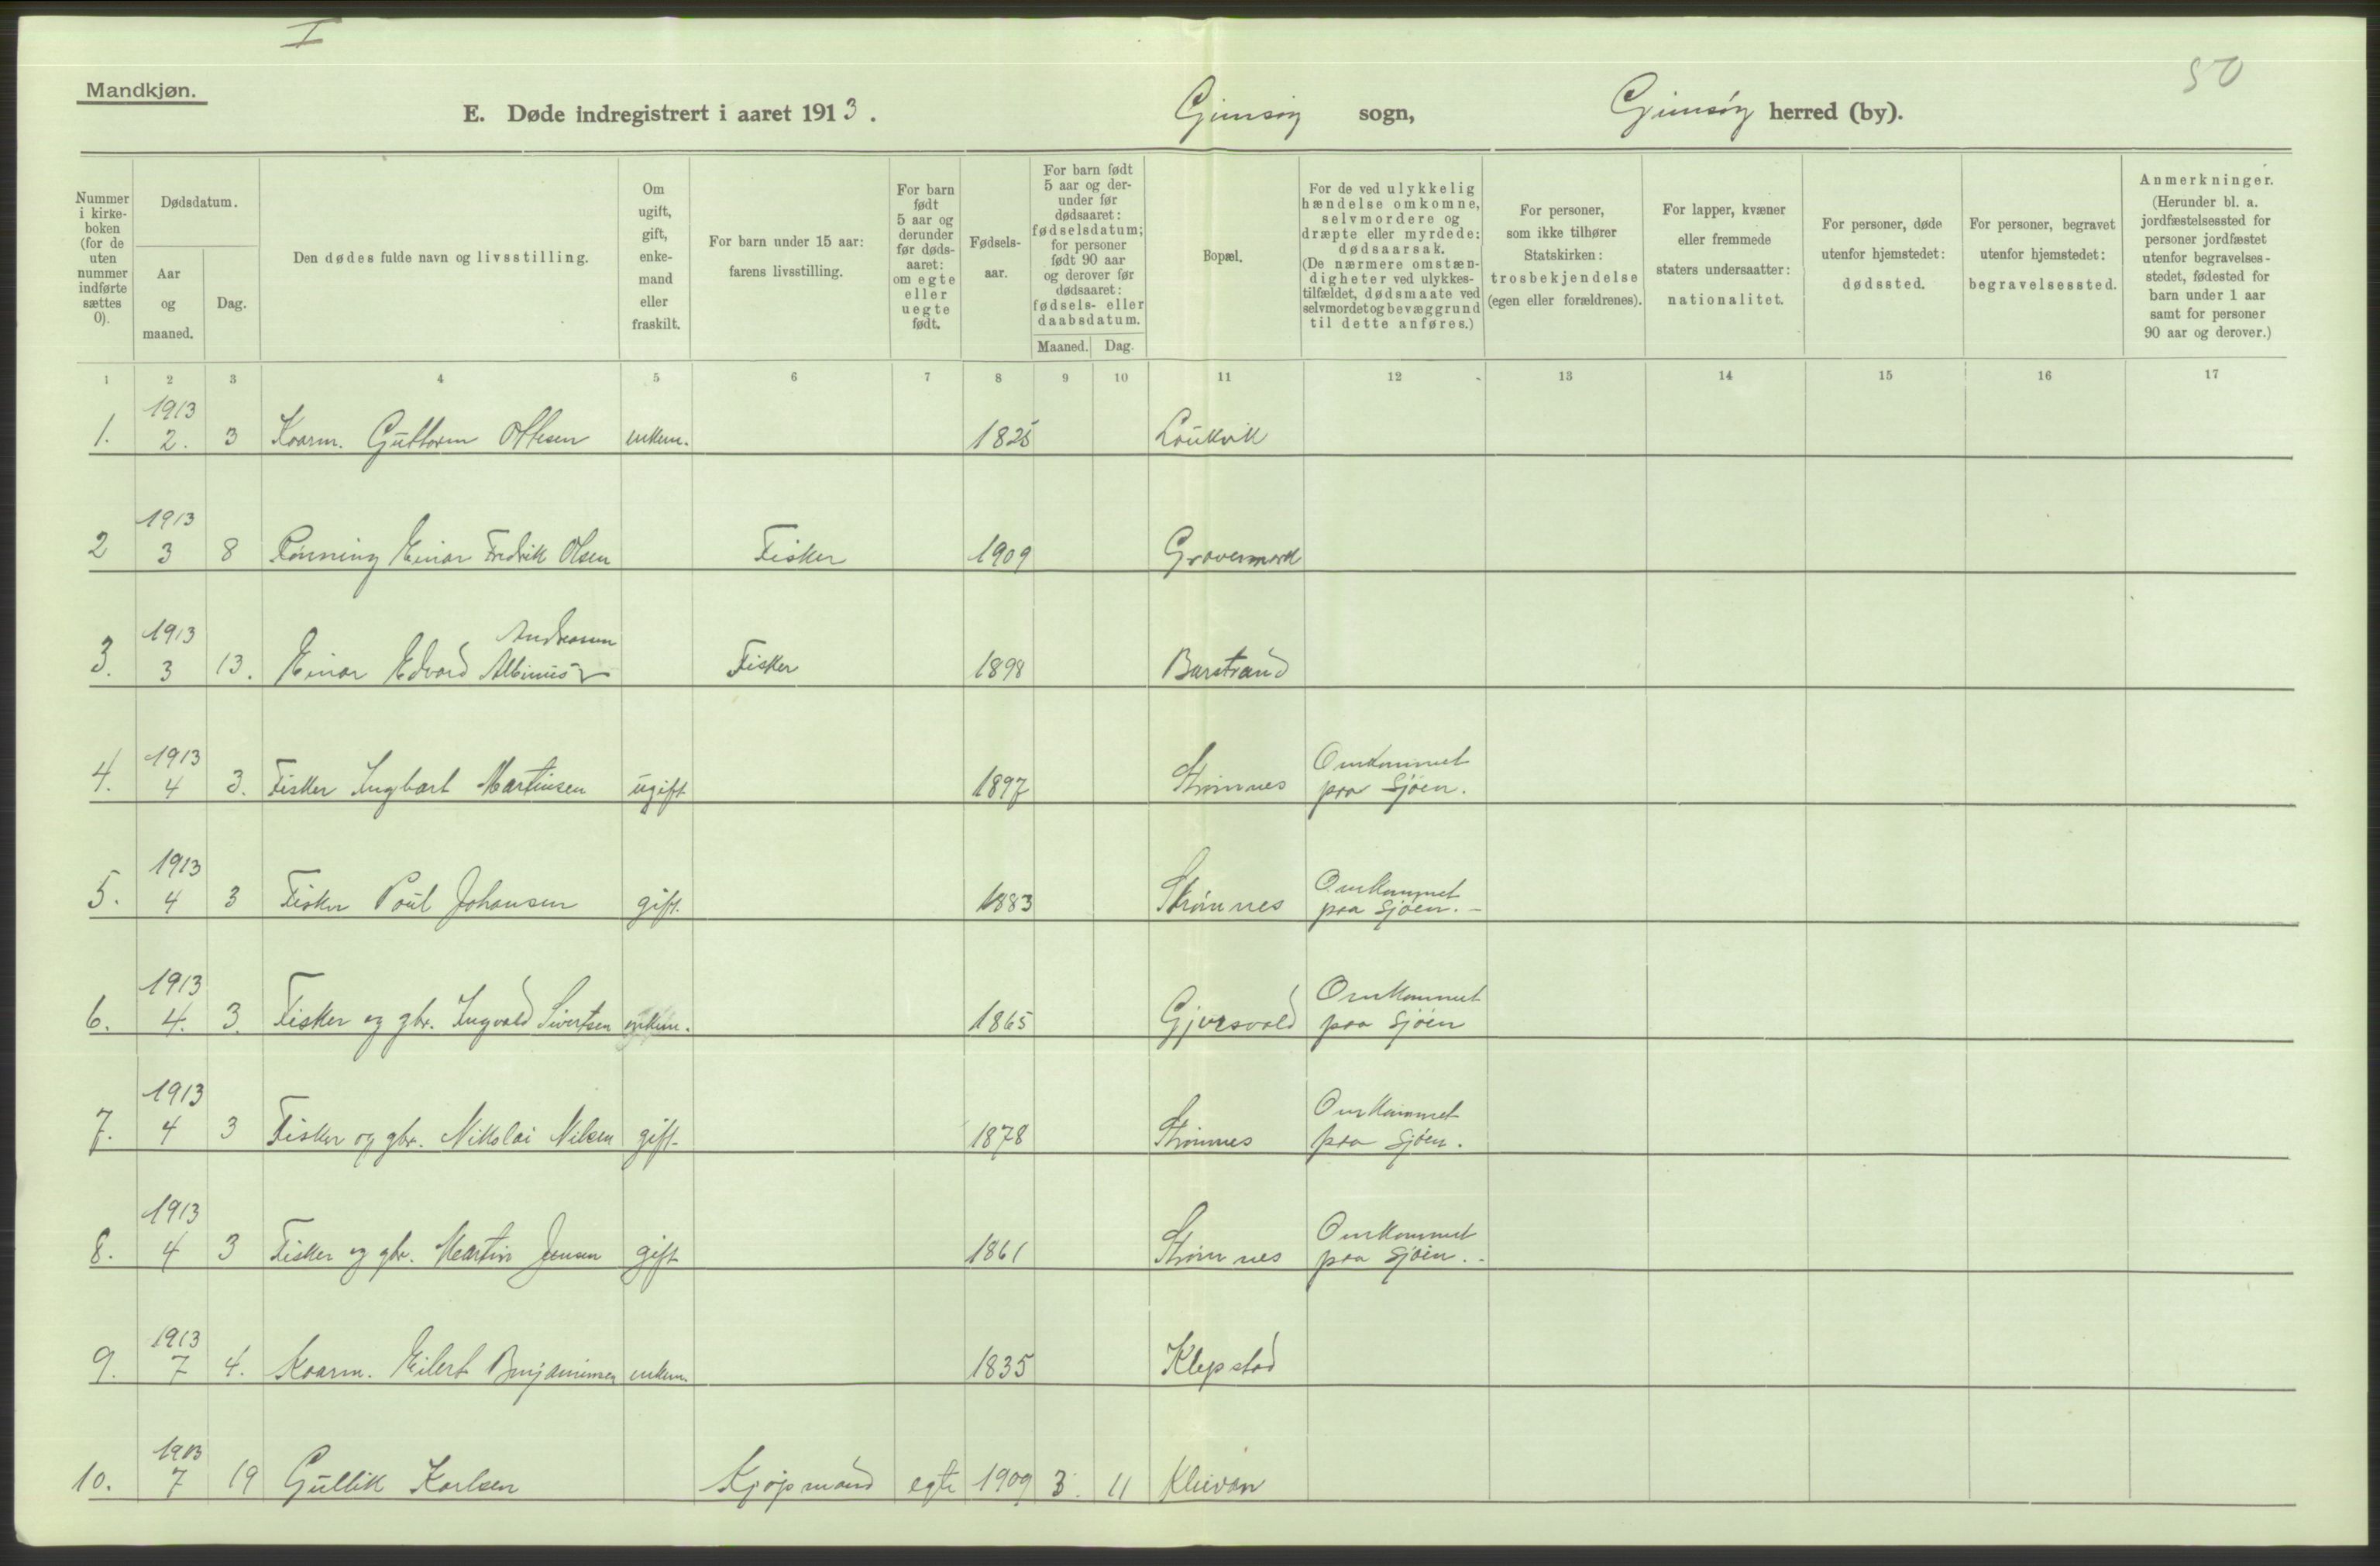 I
50
Mandkjøn.
E. Døde indregistrert i aaret 1913. Gimsøy sogn, Gimsøy herred (by).
Nummer i kirkeboken (for de uten nummer indførte sættes 0).
Dødsdatum.
Aar og maaned.
Dag.
Den dødes fulde navn og livsstilling.
Om ugift, gift, enkemand eller fraskilt.
For barn under 15 aar: farens livsstilling.
For barn født 5 aar og derunder før dødsaaret: om egte eller uegte født.
Fødselsaar.
For barn født 5 aar og derunder før dødsaaret: fødselsdatum; for personer født 90 aar og derover før dødsaaret: fødsels- eller daabsdatum.
Maaned. Dag.
Bopæl.
For de ved ulykkelig hændelse omkomne, selvmordere og dræpte eller myrdede: dødsaarsak. (De nærmere omstændigheter ved ulykkestilfældet, dødsmaate ved selvmordet og bevæggrund til dette anføres.)
For personer, som ikke tilhører Statskirken: trosbekjendelse (egen eller forældrenes).
For lapper, kvæner eller fremmede staters undersaatter: nationalitet.
For personer, døde utenfor hjemstedet: dødssted.
For personer, begravet utenfor hjemstedet: begravelsessted.
Anmerkninger. (Herunder bl. a. jordfæstelsessted for personer jordfæstet utenfor begravelsesstedet, fødested for barn under 1 aar samt for personer 90 aar og derover.)
1 2 3 4 5 6 7 8 9 10 11 12 13 14 15 16 17
1913
1. 2. 3 Kaarm. Guttorm Ottesen enkem. 1825 Laukvik
1913
2 3 8 Rønning Einar Fredrik Olsen Fisker 1909 Gravermark
1913 Andreasen
3. 3 13. Einar Edvard Albinus Fisker 1898 Barstrand
1913 Omkommet
4. 4 3. Fisker Ingbart Martinsen ugift 1897 Strømnes paa Sjøen.
1913 Omkommet
5. 4 3 Fisker Paul Johansen gift. 1883 Strømnes paa Sjøen.-
1913 Omkommet
6. 4. 3. Fisker og gbr. Ingvald Sivertsen enkem. 1865 Gjersvold paa Sjøen
1913 Omkommet
7. 4 3 Fisker og gbr. Nikolai Nilsen gift 1878 Strømnes paa Sjøen.
1913 Omkommet
8. 4 3 Fisker og gbr. Martin Jensen gift 1861 Strømnes paa Sjøen.-
1913
9. 7 4. Kaarm. Eilert Benjaminsen enkem. 1835 Klepstad
1913
10. 7 19 Gullik Karlsen Kjøpmand egte 1909 3. 11 Kleivan